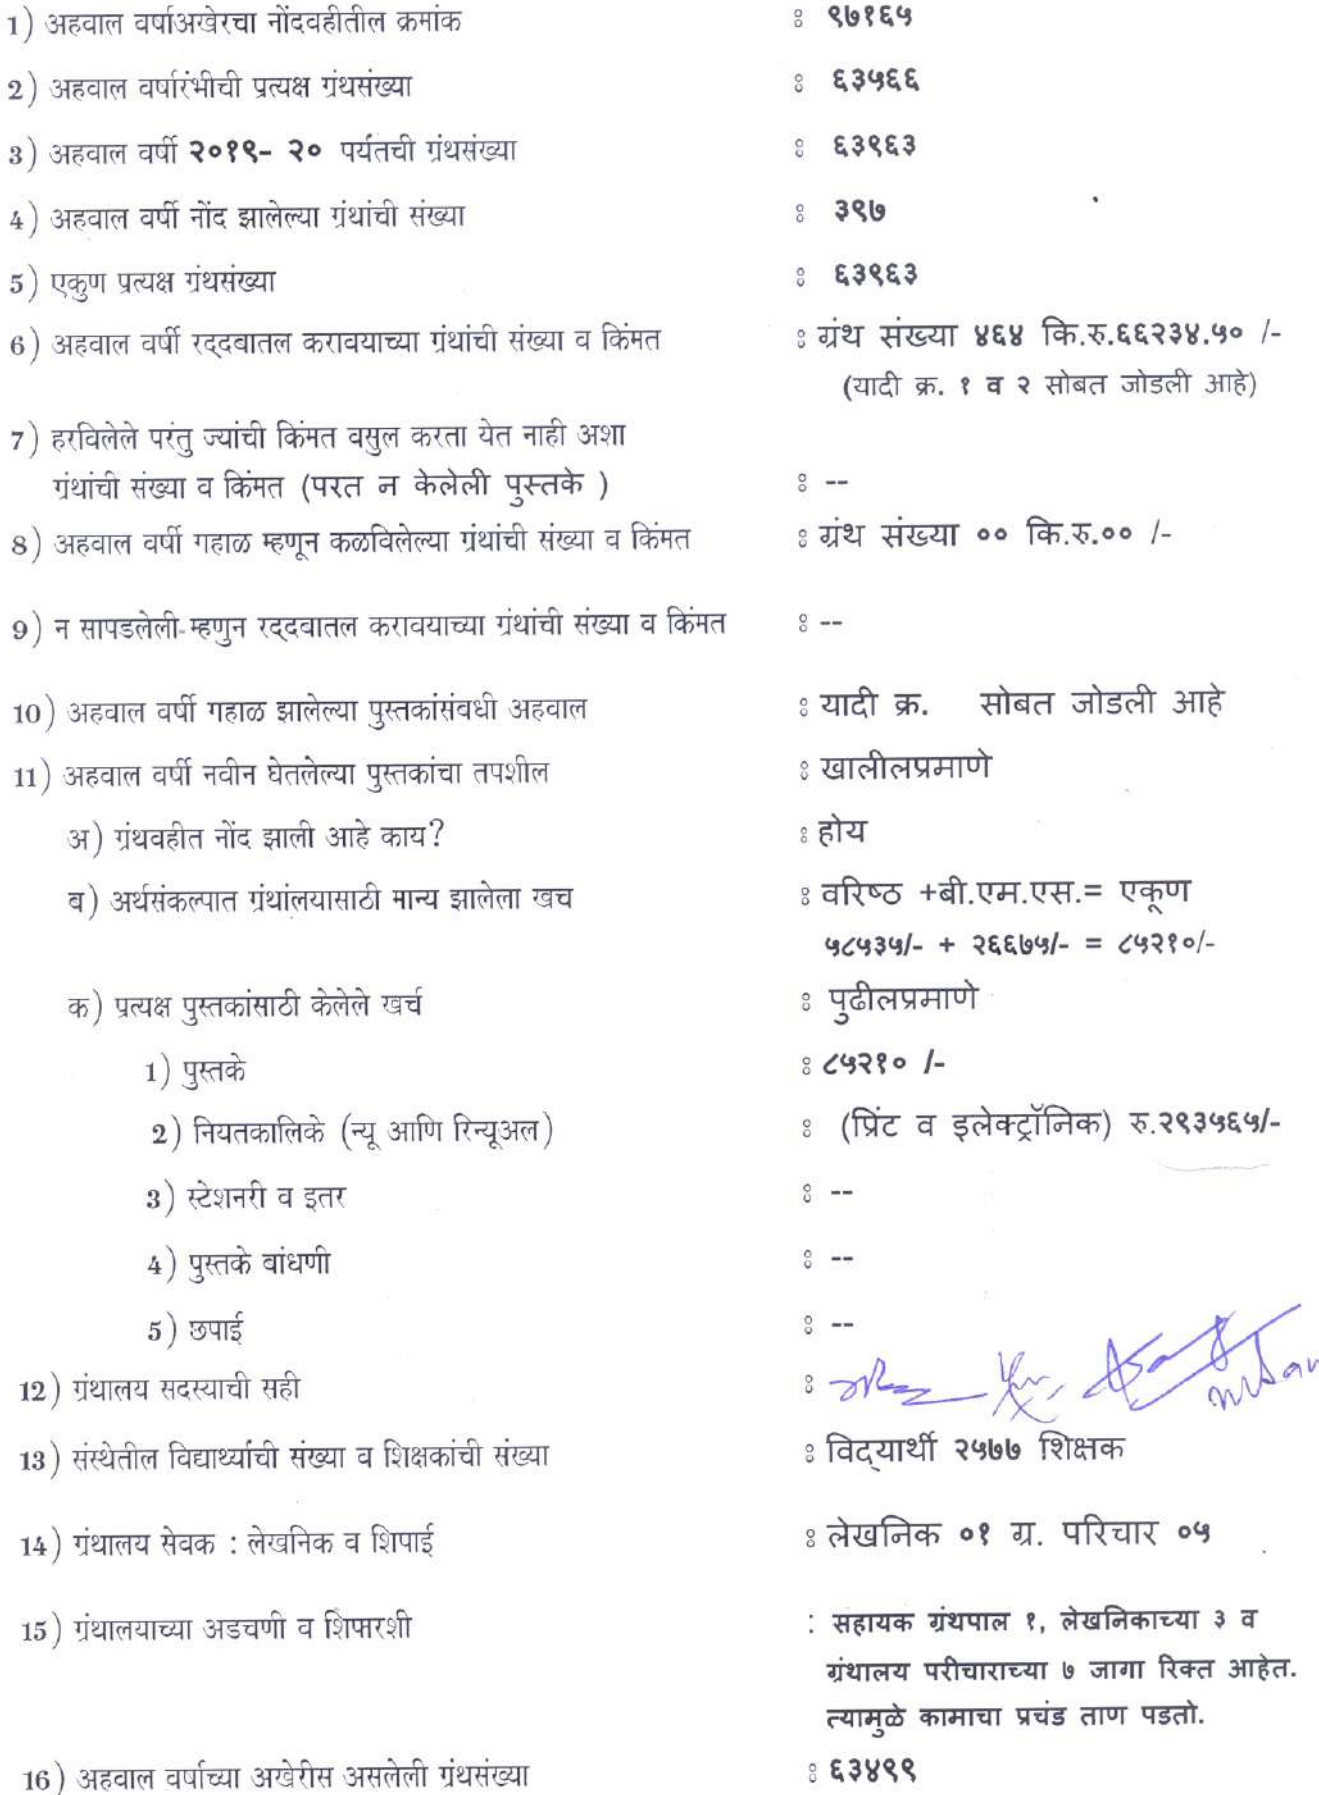 1) अहवाल वर्षाअखेरचा नोंदवहीतील क्रमांक : ९७१६५
2) अहवाल वर्षारंभीची प्रत्यक्ष ग्रंथसंख्या : ६३५६६
3) अहवाल वर्षी २०१९- २० पर्यंतची ग्रंथसंख्या : ६३९६३
4) अहवाल वर्षी नोंद झालेल्या ग्रंथांची संख्या : ३९७
5) एकुण प्रत्यक्ष ग्रंथसंख्या : ६३९६३
6) अहवाल वर्षी रद्दबातल करावयाच्या ग्रंथांची संख्या व किंमत : ग्रंथ संख्या ४६४ कि.रु.६६२३४.५० /-
(यादी क्र. १ व २ सोबत जोडली आहे)
7) हरविलेले परंतु ज्यांची किंमत वसुल करता येत नाही अशा
ग्रंथांची संख्या व किंमत (परत न केलेली पुस्तके ) : --
8) अहवाल वर्षी गहाळ म्हणून कळविलेल्या ग्रंथांची संख्या व किंमत : ग्रंथ संख्या ०० कि.रु.०० /-
9) न सापडलेली म्हणुन रद्दबातल करावयाच्या ग्रंथांची संख्या व किंमत : --
10) अहवाल वर्षी गहाळ झालेल्या पुस्तकांसंबधी अहवाल : यादी क्र. सोबत जोडली आहे
11) अहवाल वर्षी नवीन घेतलेल्या पुस्तकांचा तपशील : खालीलप्रमाणे
अ) ग्रंथवहीत नोंद झाली आहे काय? : होय
ब) अर्थसंकल्पात ग्रंथांलयासाठी मान्य झालेला खच : वरिष्ठ +बी.एम.एस.= एकूण
५८५३५/- + २६६७५/- = ८५२१०/-
क) प्रत्यक्ष पुस्तकांसाठी केलेले खर्च : पुढीलप्रमाणे
1) पुस्तके : ८५२१० /-
2) नियतकालिके (न्यू आणि रिन्यूअल) : (प्रिंट व इलेक्ट्रॉनिक) रु.२९३५६५/-
3) स्टेशनरी व इतर : --
4) पुस्तके बांधणी : --
5) छपाई : --
12) ग्रंथालय सदस्याची सही :
13) संस्थेतील विद्यार्थ्यांची संख्या व शिक्षकांची संख्या : विद्यार्थी २५७७ शिक्षक
14) ग्रंथालय सेवक : लेखनिक व शिपाई : लेखनिक ०१ ग्र. परिचार ०५
15) ग्रंथालयाच्या अडचणी व शिफारशी : सहायक ग्रंथपाल १, लेखनिकाच्या ३ व
ग्रंथालय परीचाराच्या ७ जागा रिक्त आहेत.
त्यामुळे कामाचा प्रचंड ताण पडतो.
16) अहवाल वर्षाच्या अखेरीस असलेली ग्रंथसंख्या : ६३४९९